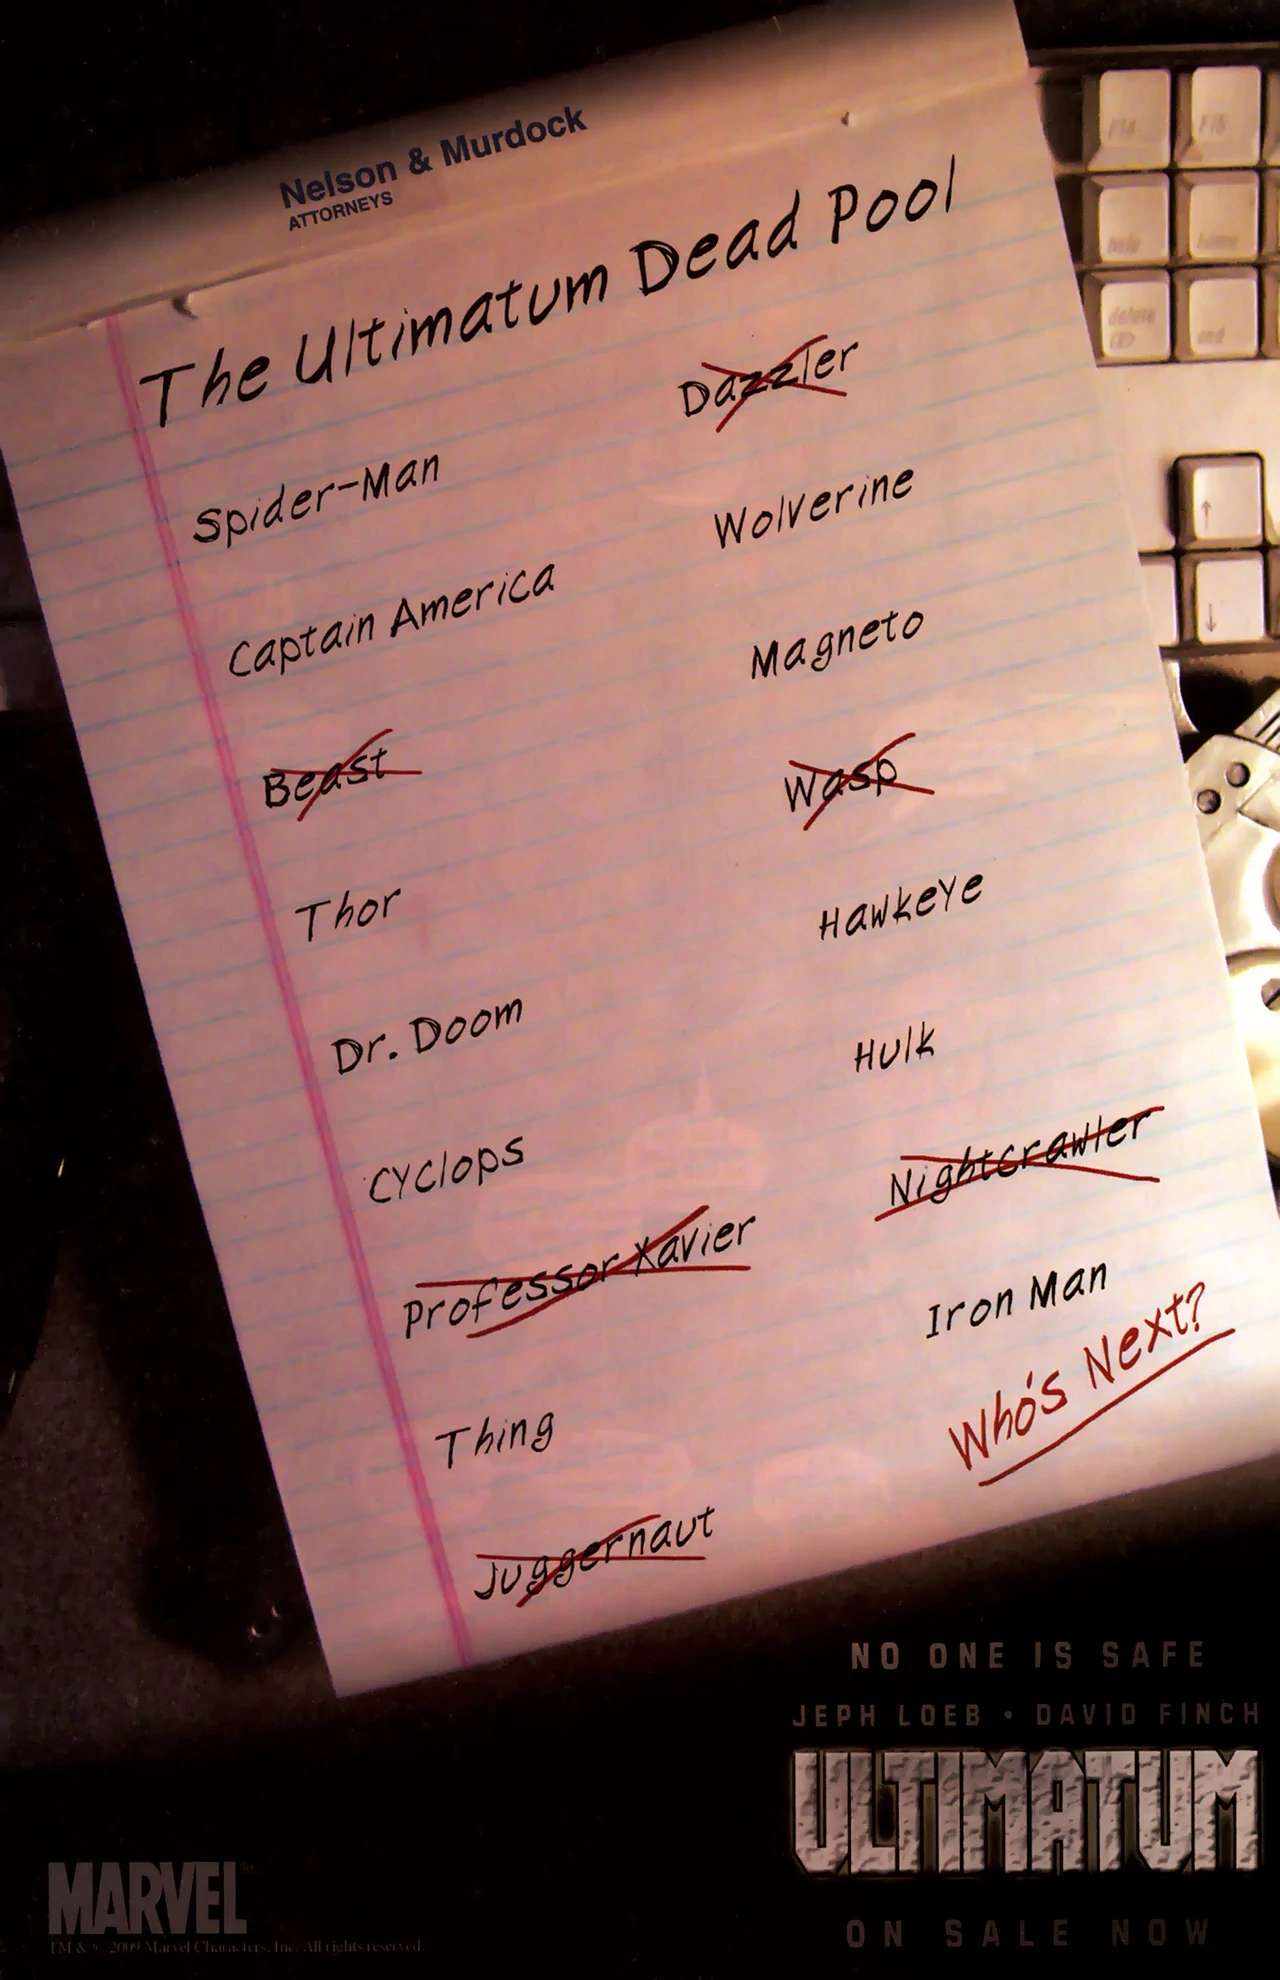 Nelson & Murdock
ATTORNEYS
The Ultimatum Dead Pool
Spider-Man
Captain America
Beast
Thor
Dr. Doom
Cyclops
Professor Xavier
Thing
Juggernaut
Dazzler
Wolverine
Magneto
Wasp
Hawkeye
Hulk
Nightcrawler
Iron Man
Who's Next?
F14
F15
help
home
delete
end
↑
↓
NO ONE IS SAFE
JEPH LOEB • DAVID FINCH
ULTIMATUM
ON SALE NOW
MARVEL
TM & © 2009 Marvel Characters, Inc. All rights reserved.